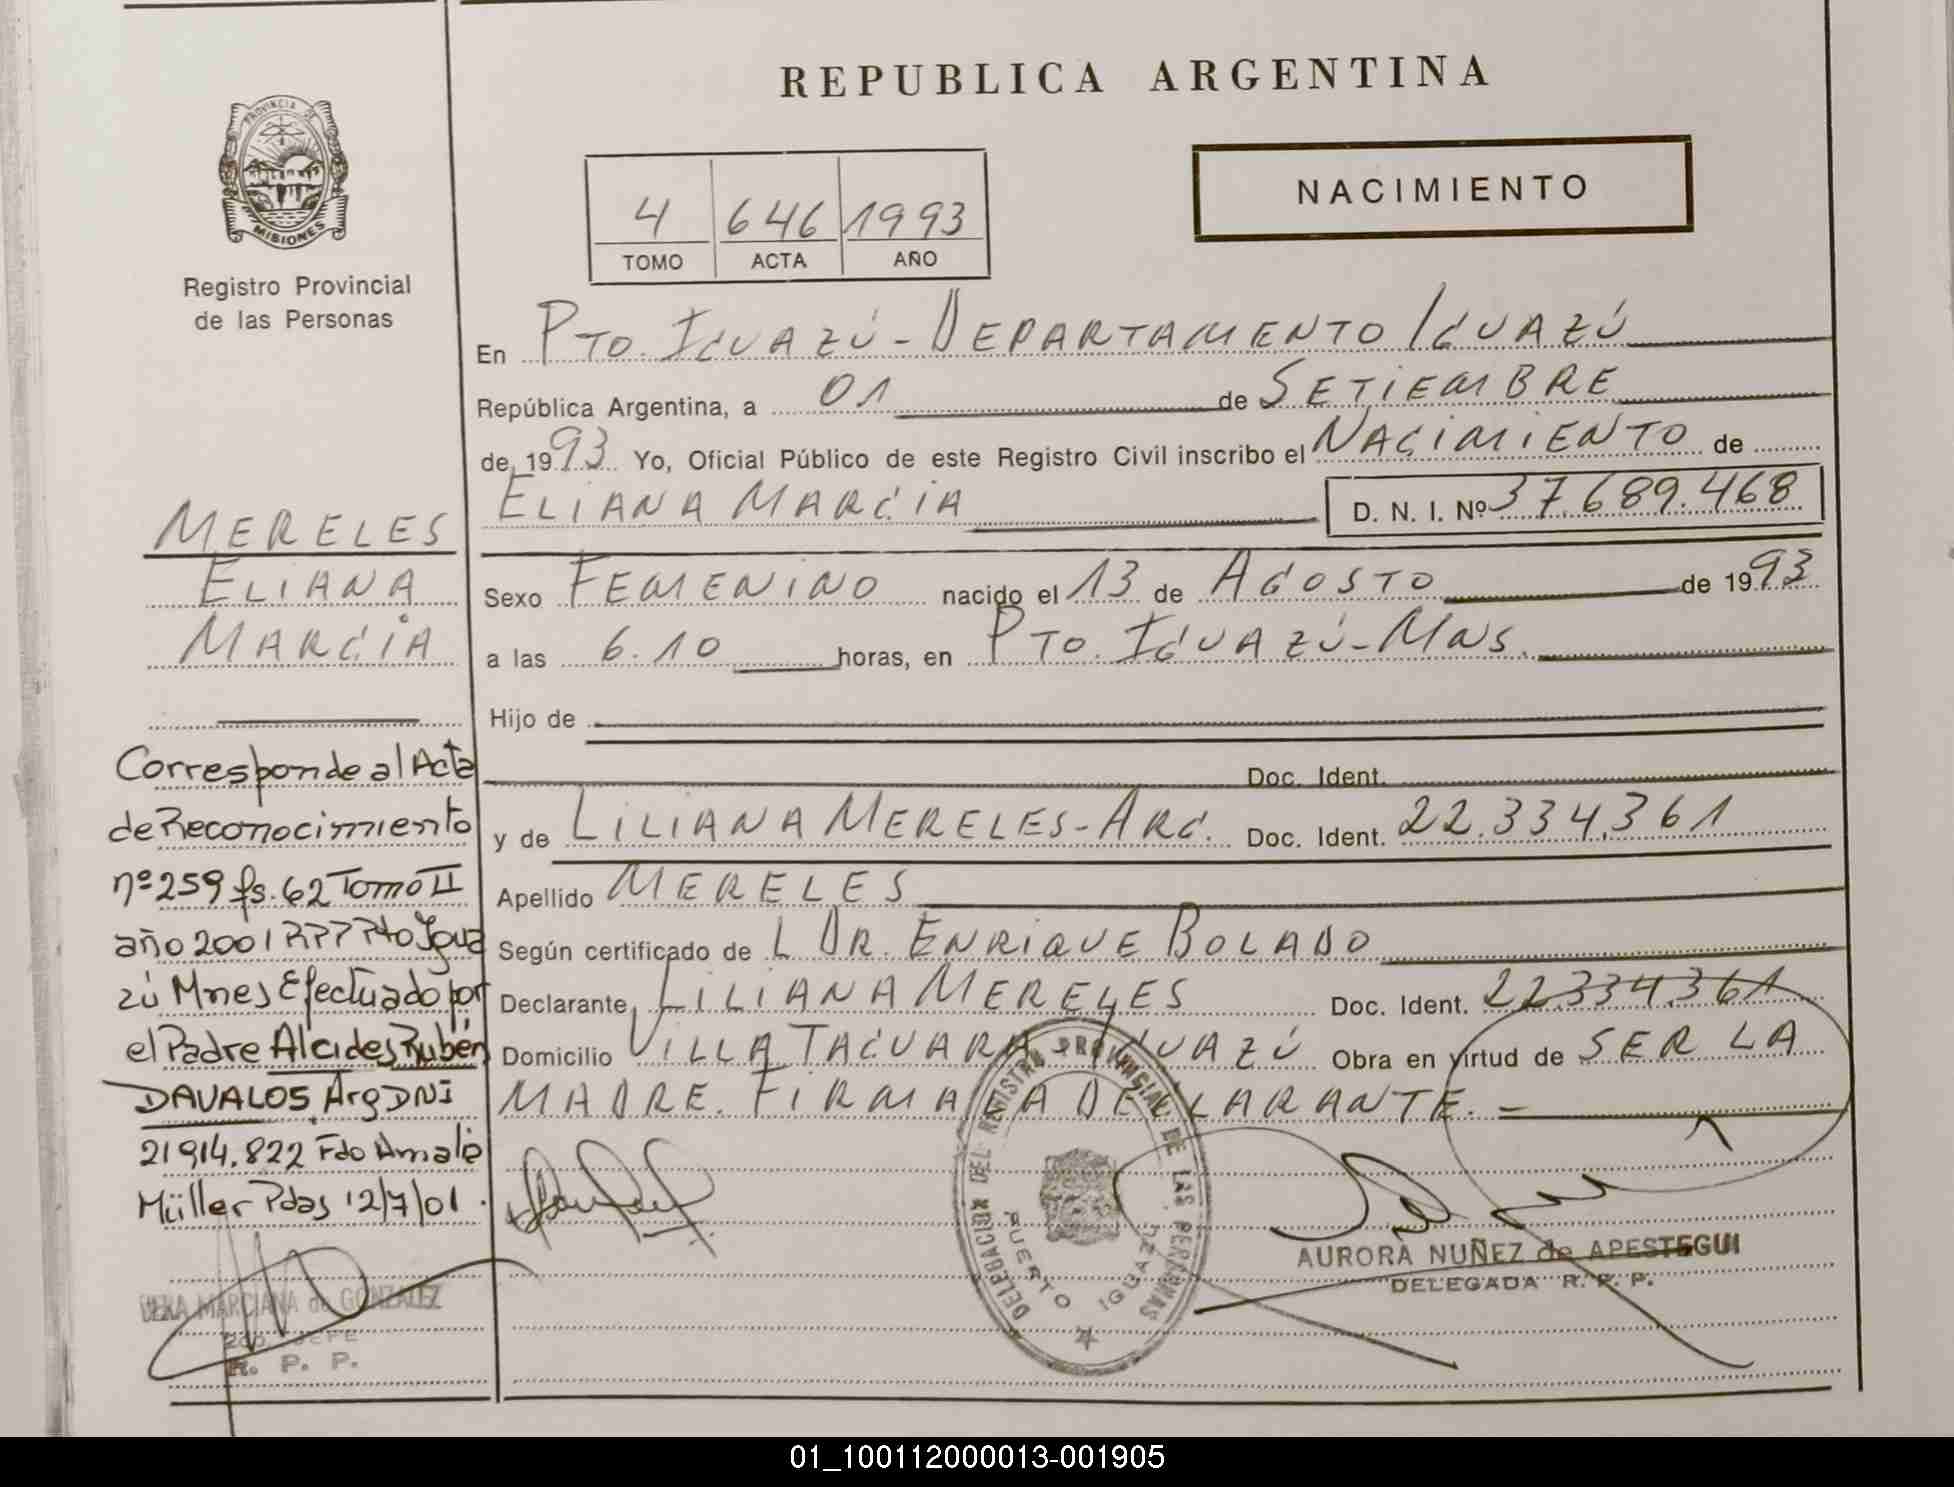 REPUBLICA ARGENTINA
PROVINCIA DE
MISIONES
Registro Provincial
de las Personas
4 646 1993
TOMO ACTA AÑO
NACIMIENTO
En PTO. IGUAZÚ - DEPARTAMENTO IGUAZÚ
República Argentina, a 01 de SETIEMBRE
de 1993 Yo, Oficial Público de este Registro Civil inscribo el NACIMIENTO de
ELIANA MARCIA D. N. I. Nº 37.689.468
Sexo FEMENINO nacido el 13 de AGOSTO de 1993
a las 6.10 horas, en PTO. IGUAZÚ - MNS.
Hijo de
Doc. Ident.
y de LILIANA MERELES - ARG. Doc. Ident. 22.334.361
Apellido MERELES
Según certificado de L DR. ENRIQUE BOLADO
Declarante LILIANA MERELES Doc. Ident. 22.334.361
Domicilio VILLA TACUARA - IGUAZÚ Obra en virtud de SER LA
MADRE. FIRMA LA DECLARANTE. -
MERELES
ELIANA
MARCIA
Corresponde al Acta
de Reconocimiento
nº 259 fs. 62 Tomo II
año 2001 Pto Igua
zú Mnes Efectuado por
el Padre Alcides Rubén
DAVALOS Arg DNI
21914.822 Fdo Amalia
Müller Pdas 12/7/01.
MARCIANA de GONZALEZ
2do. JEFE
R. P. P.
DELEGACION DEL REGISTRO PROVINCIAL DE LAS PERSONAS
PUERTO IGUAZU
AURORA NUÑEZ de APESTEGUI
DELEGADA R. P. P.
01_100112000013-001905